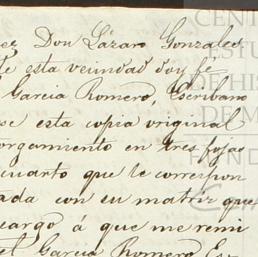 ez, Don Lázaro Gonzalez
de esta vecindad doy fé
García Romero, Escribano
se esta copia original
orgamiento en tres fojas
cuarto que le correspon
ada con su matriz que
cargo á que me remi
el García Romero Es
CENT
ESTU
DE HIS
DE M
FUND